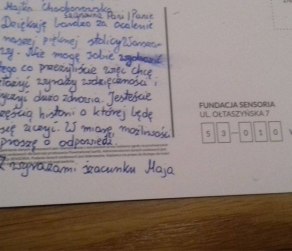 Majka Chodponowska
Szanowna Pani/Panie
Dziękuję bardzo za ocalenie
naszej pięknej stolicy Warsza-
wy. Nie mogę sobie wyobrazić
tego co przeżyliście więc chcę
złożyć wyrazy wdzięczności i
życzyć dużo zdrowia. Jesteście
częścią historii o której będę
się uczyć. W miarę możliwości
proszę o odpowiedź.
Z wyrazami szacunku Maja
FUNDACJA SENSORIA
UL. OŁTASZYŃSKA 7
53-010